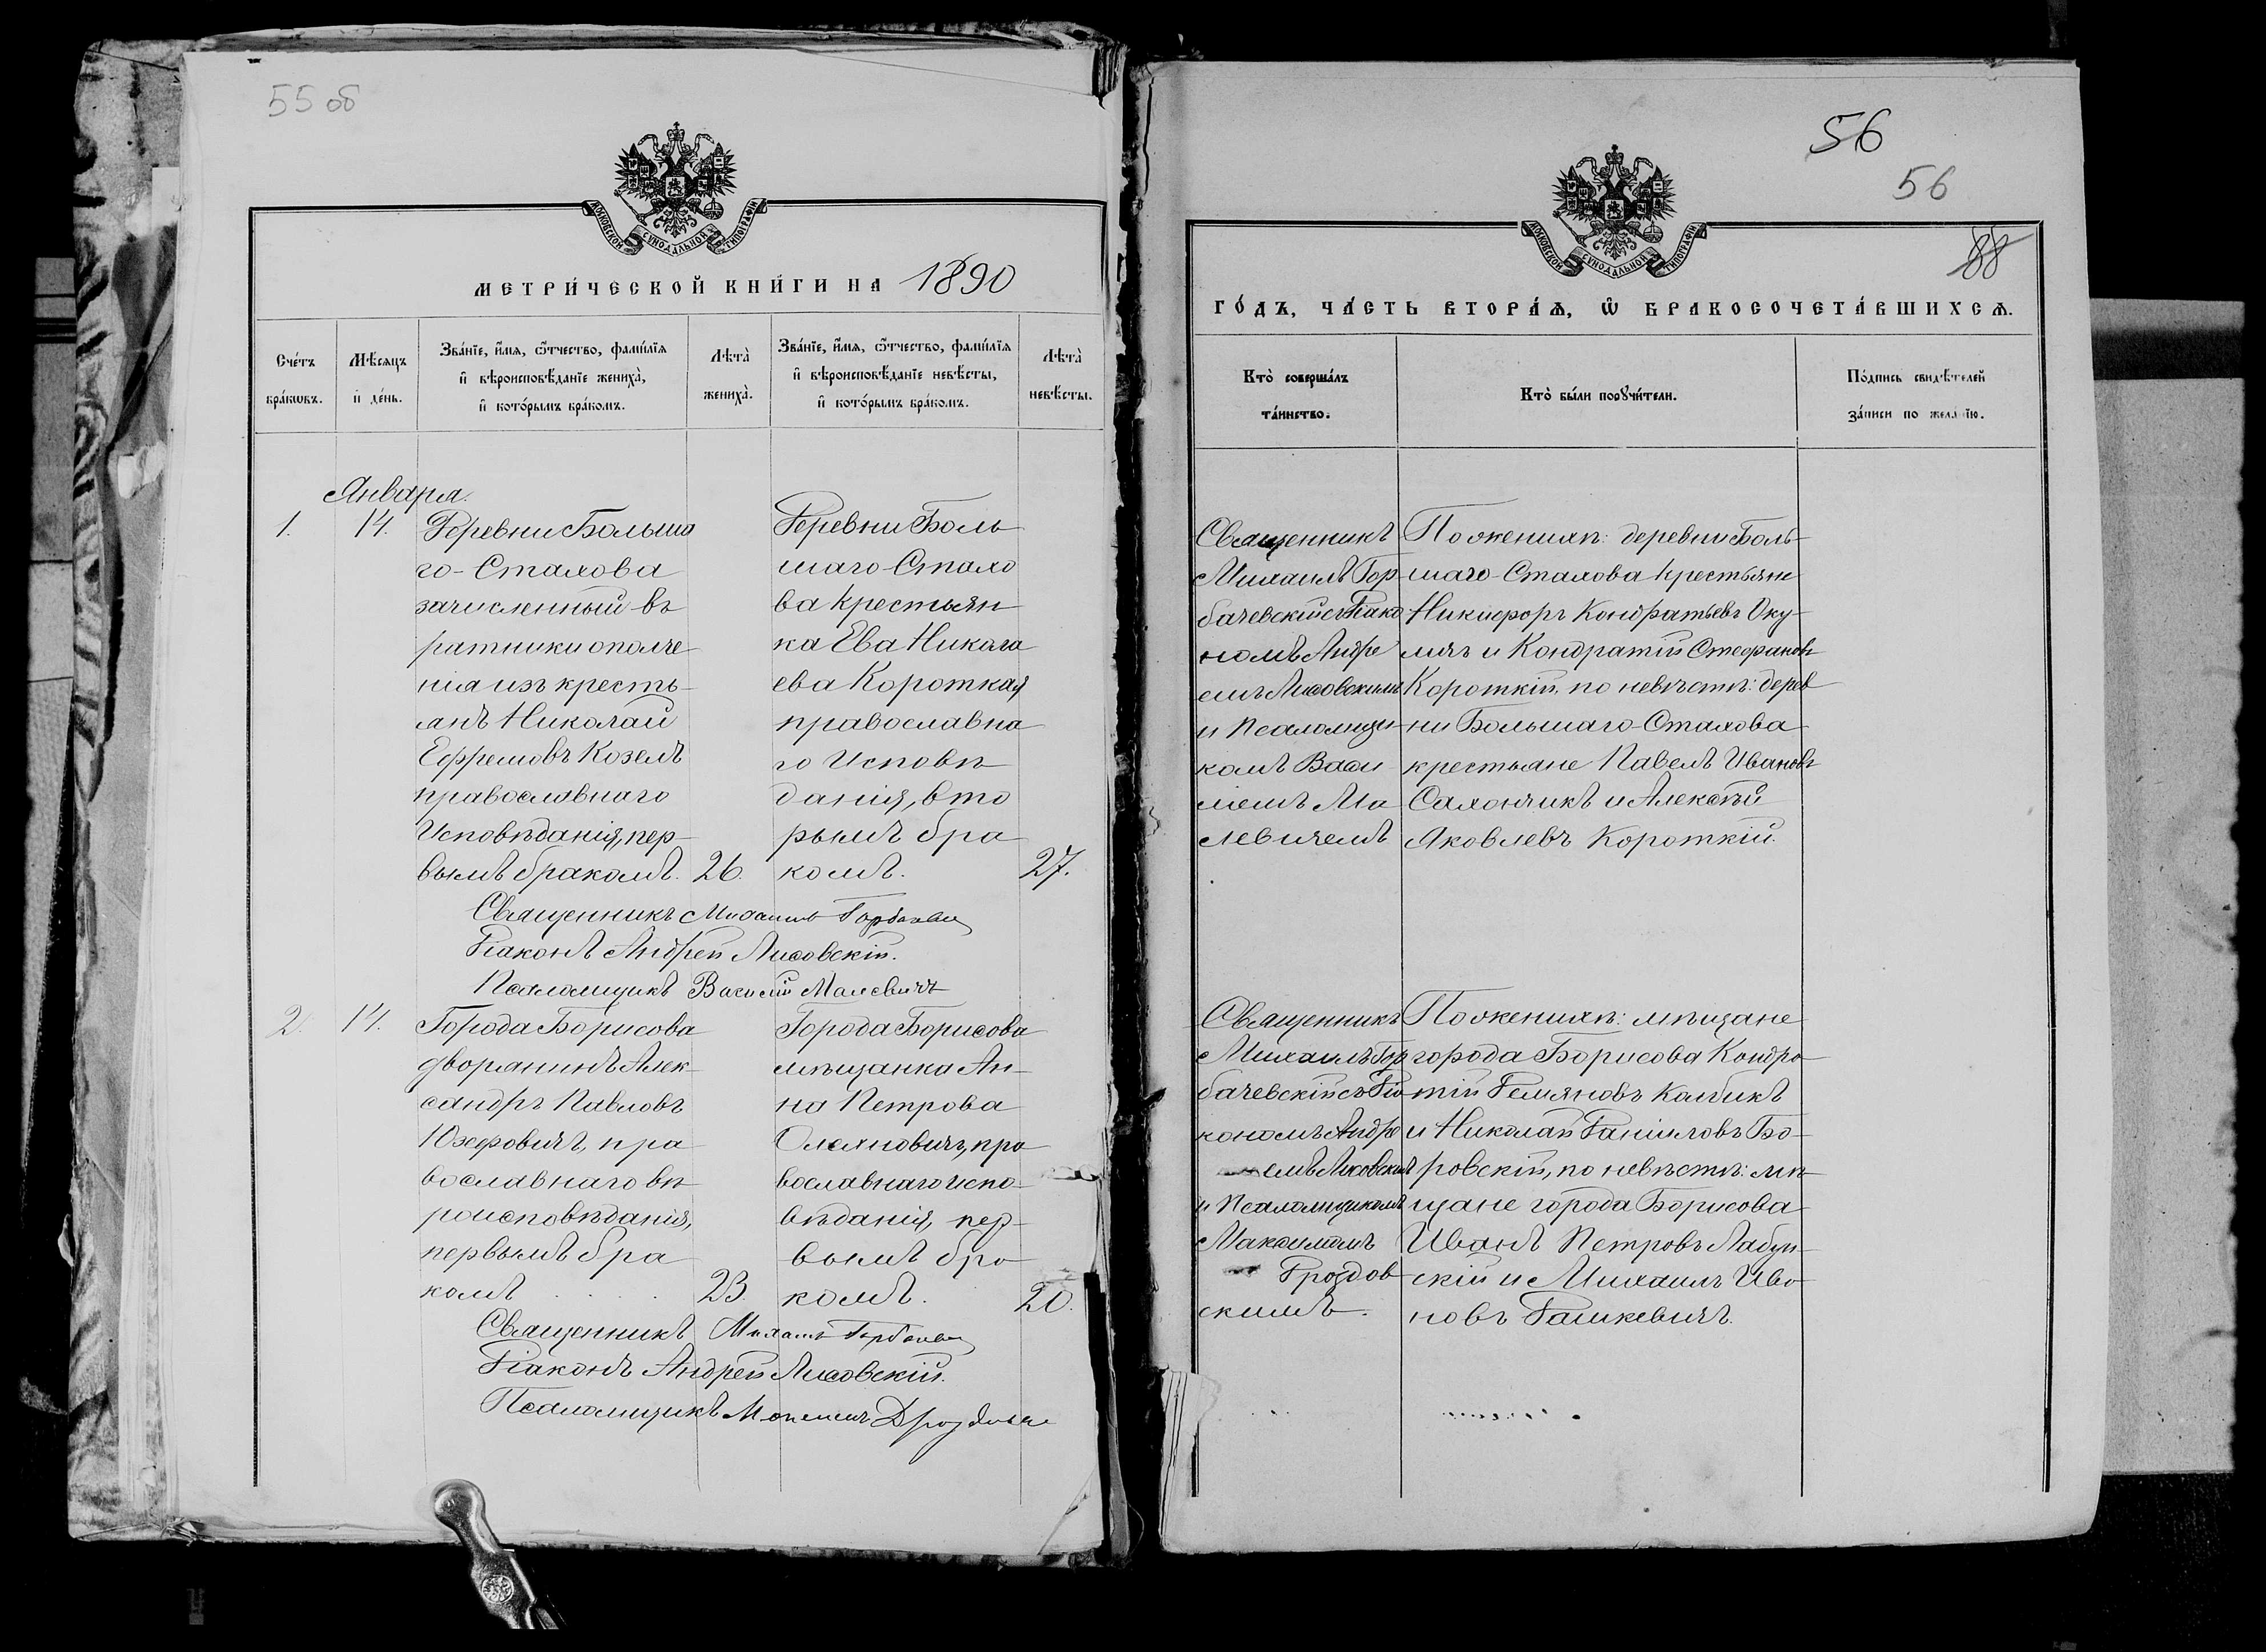 55 об
МОСКОВСКОЙ СѴНОДАЛЬНОЙ ТИПОГРАФІИ
МЕТРИ́ЧЕСКОЙ КНИ́ГИ НА 1890
Сче́тъ бра́кѡвъ.
Мѣ́сяцъ и҆ де́нь.
Зва́нїе, и҆́мѧ, ѻ҆́тчество, фамѝлїѧ
и҆ вѣроисповѣ́данїе жениха̀,
и҆ кото́рымъ бра́комъ.
Лѣта̀
жениха̀.
Зва́нїе, и҆́мѧ, ѻ҆́тчество, фамѝлїѧ
и҆ вѣроисповѣ́данїе невѣ́сты,
и҆ кото́рымъ бра́комъ.
Лѣта̀
невѣ́сты.
Января.
1. 14.
Деревни Больша
го-Стахова
зачисленный въ
ратники ополче
нія изъ кресть-
янъ Николай
Ефремовъ Козелъ
православнаго
Исповѣданія, пер-
вымъ бракомъ. 26.
Деревни Боль
шаго-Стахо
ва крестьян
ка Ева Никола
ева Короткая
православна
го Исповѣ
данія, вто
рымъ бра
комъ. 27.
Священникъ Михаилъ
Діаконъ Андрей Лисовскій.
Псаломщикъ Василій Малевичъ
2. 14.
Города Борисова
дворянинъ Алек-
сандръ Павловъ
Юзефовичъ, пра
вославнаго вѣ
роисповѣданія,
первымъ бра
комъ . . . . 23.
Города Борисова
мѣщанка Ан-
на Петрова
Олехновичъ, пра
вославнаго испо-
вѣданія, пер-
вымъ бра
комъ. 20.
Священникъ Михаилъ
Діаконъ Андрей Лисовскій.
Псаломщикъ
56
56
88
МОСКОВСКОЙ СѴНОДАЛЬНОЙ ТИПОГРАФІИ
ГО́ДЪ, ЧА́СТЬ ВТОРА́Ѧ, Ѡ҆ БРАКОСОЧЕТА́ВШИХСѦ.
Кто̀ соверша́лъ
та́инство.
Кто̀ бы́ли порꙋчи́тели.
По́дпись свидѣ́телей
за́писи по жела́нїю.
Священникъ
Михаилъ Гор-
бачевскій съ Діако
номъ Андре
емъ Лисовскимъ
и Псаломщи
комъ Васи
ліемъ Ма
левичемъ
По женихѣ: деревни Боль-
шаго-Стахова крестьяне
Никифоръ Кондратьевъ Оку-
личъ и Кондратій Стефановъ
Короткій, по невѣстѣ: дерев
ни Большаго-Стахова
крестьяне Павелъ Ивановъ
Сахончикъ и Алексѣй
Яковлевъ Короткій.
Священникъ
Михаилъ Гор
бачевскій съ Діа
кономъ Андре
емъ Лисовскимъ
и Псаломщикомъ
Максимомъ
Дроздов
скимъ.
По женихѣ: мѣщане
города Борисова Кондра-
тій Демяновъ Колбикъ
и Николай Даніиловъ Бо-
ровскій, по невѣстѣ: мѣ-
щане города Борисова
Иванъ Петровъ Лабун-
скій и Михаилъ Ива
новъ Дашкевичъ.